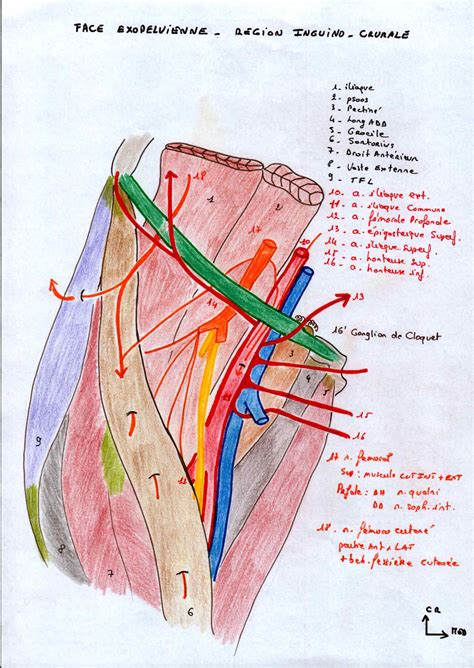 FACE EXOPELVIENNE - RÉGION INGUINO-CRURALE
1 - iliaque
2 - psoas
3 - Pectiné
4 - Long ADD
5 - Gracile
6 - Sartorius
7 - Droit Antérieur
8 - Vaste Externe
9 - TFL
10 - a. iliaque ext.
11 - a. iliaque Commune
12 - a. fémorale Profonde
13 - a. épigastrique Superf.
14 - a. iliaque Superf.
15 - a. honteuse Sup.
16 - a. honteuse inf.
18
1
2
17
10
13
14
16' Ganglion de Cloquet
3
4
5
15
16
9
12
17 n. fémoral
Sup: musculo cut INT + EXT
Pfde: DH n. quadri
DD n. saph. int.
18. n. fémoro cutané
partie Ant + LAT
+ bed. fessière cutanée
8
7
6
CR
MED